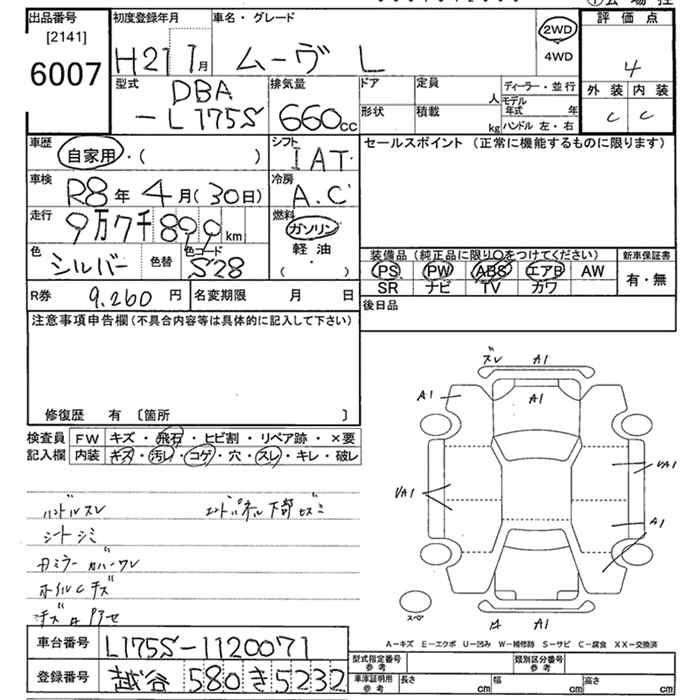 出品番号
[2141]
6007
初度登録年月
H21 7月
車名・グレード
ムーヴ L
2WD
4WD
評価点
4
外装 内装
C C
型式
DBA
-L175S
排気量
660cc
ドア
定員
人
ディーラー・並行
モデル年式 年
形状
積載
kg
ハンドル 左・右
車歴
自家用・( )
シフト
IAT
セールスポイント (正常に機能するものに限ります)
車検
R8年4月(30日)
冷房
A.C
走行
9万7千890km
燃料
ガソリン
軽・油
( )
色
シルバー
色替
色コード
S28
装備品 (純正品に限り○をつけてください)
新車保証書
PS PW ABS エアB AW
有・無
SR ナビ TV カワ
R券
9,260円
名変期限 月 日
後日品
注意事項申告欄(不具合内容等は具体的に記入して下さい)
修復歴 有 〔箇所 〕
検査員記入欄
FW キズ・飛石・ヒビ割・リペア跡・×要
内装 キズ・汚レ・コゲ・穴・スレ・キレ・破レ
ハンドルスレ
シートシミ
ホイルCキズ
ズレ A1
A1 A1
A1
A1
スペア
A1
A-キズ E-エクボ U-凹み W-補修跡 S-サビ C-腐食 XX-交換済
車台番号
L175S-1120071
登録番号
越谷 580 き 5232
型式指定番号 参考
類別区分番号 参考
車庫証明用 参考
長さ cm
幅 cm
高さ cm